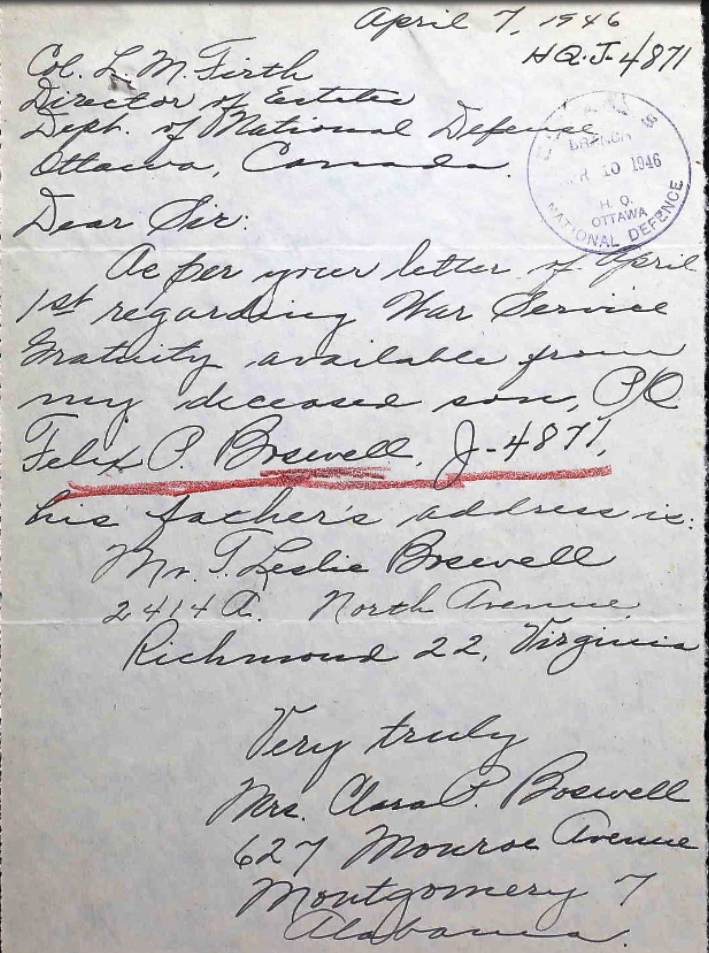 April 7, 1946
HQ-J-4871
Col. L. M. Firth
Director of Estates
Dept. of National Defense
Ottawa, Canada.
ESTATES
BRANCH
10 1946
H. Q.
OTTAWA
NATIONAL DEFENCE
Dear Sir:
As per your letter of April
1st regarding War Service
Gratuity available from
my deceased son, P/O
Felix P. Boswell, J-4871,
his father's address is:
Mr. T. Leslie Boswell
2414 A. North Avenue
Richmond 22, Virginia
Very truly
Mrs. Clara P. Boswell
627 Monroe Avenue
Montgomery 7
Alabama.